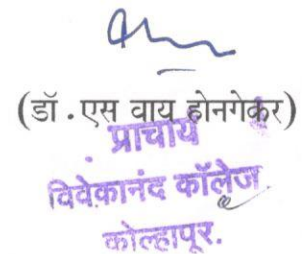 (डॉ.एस वाय होनगेकर)
प्राचार्य
विवेकानंद कॉलेज
कोल्हापूर.